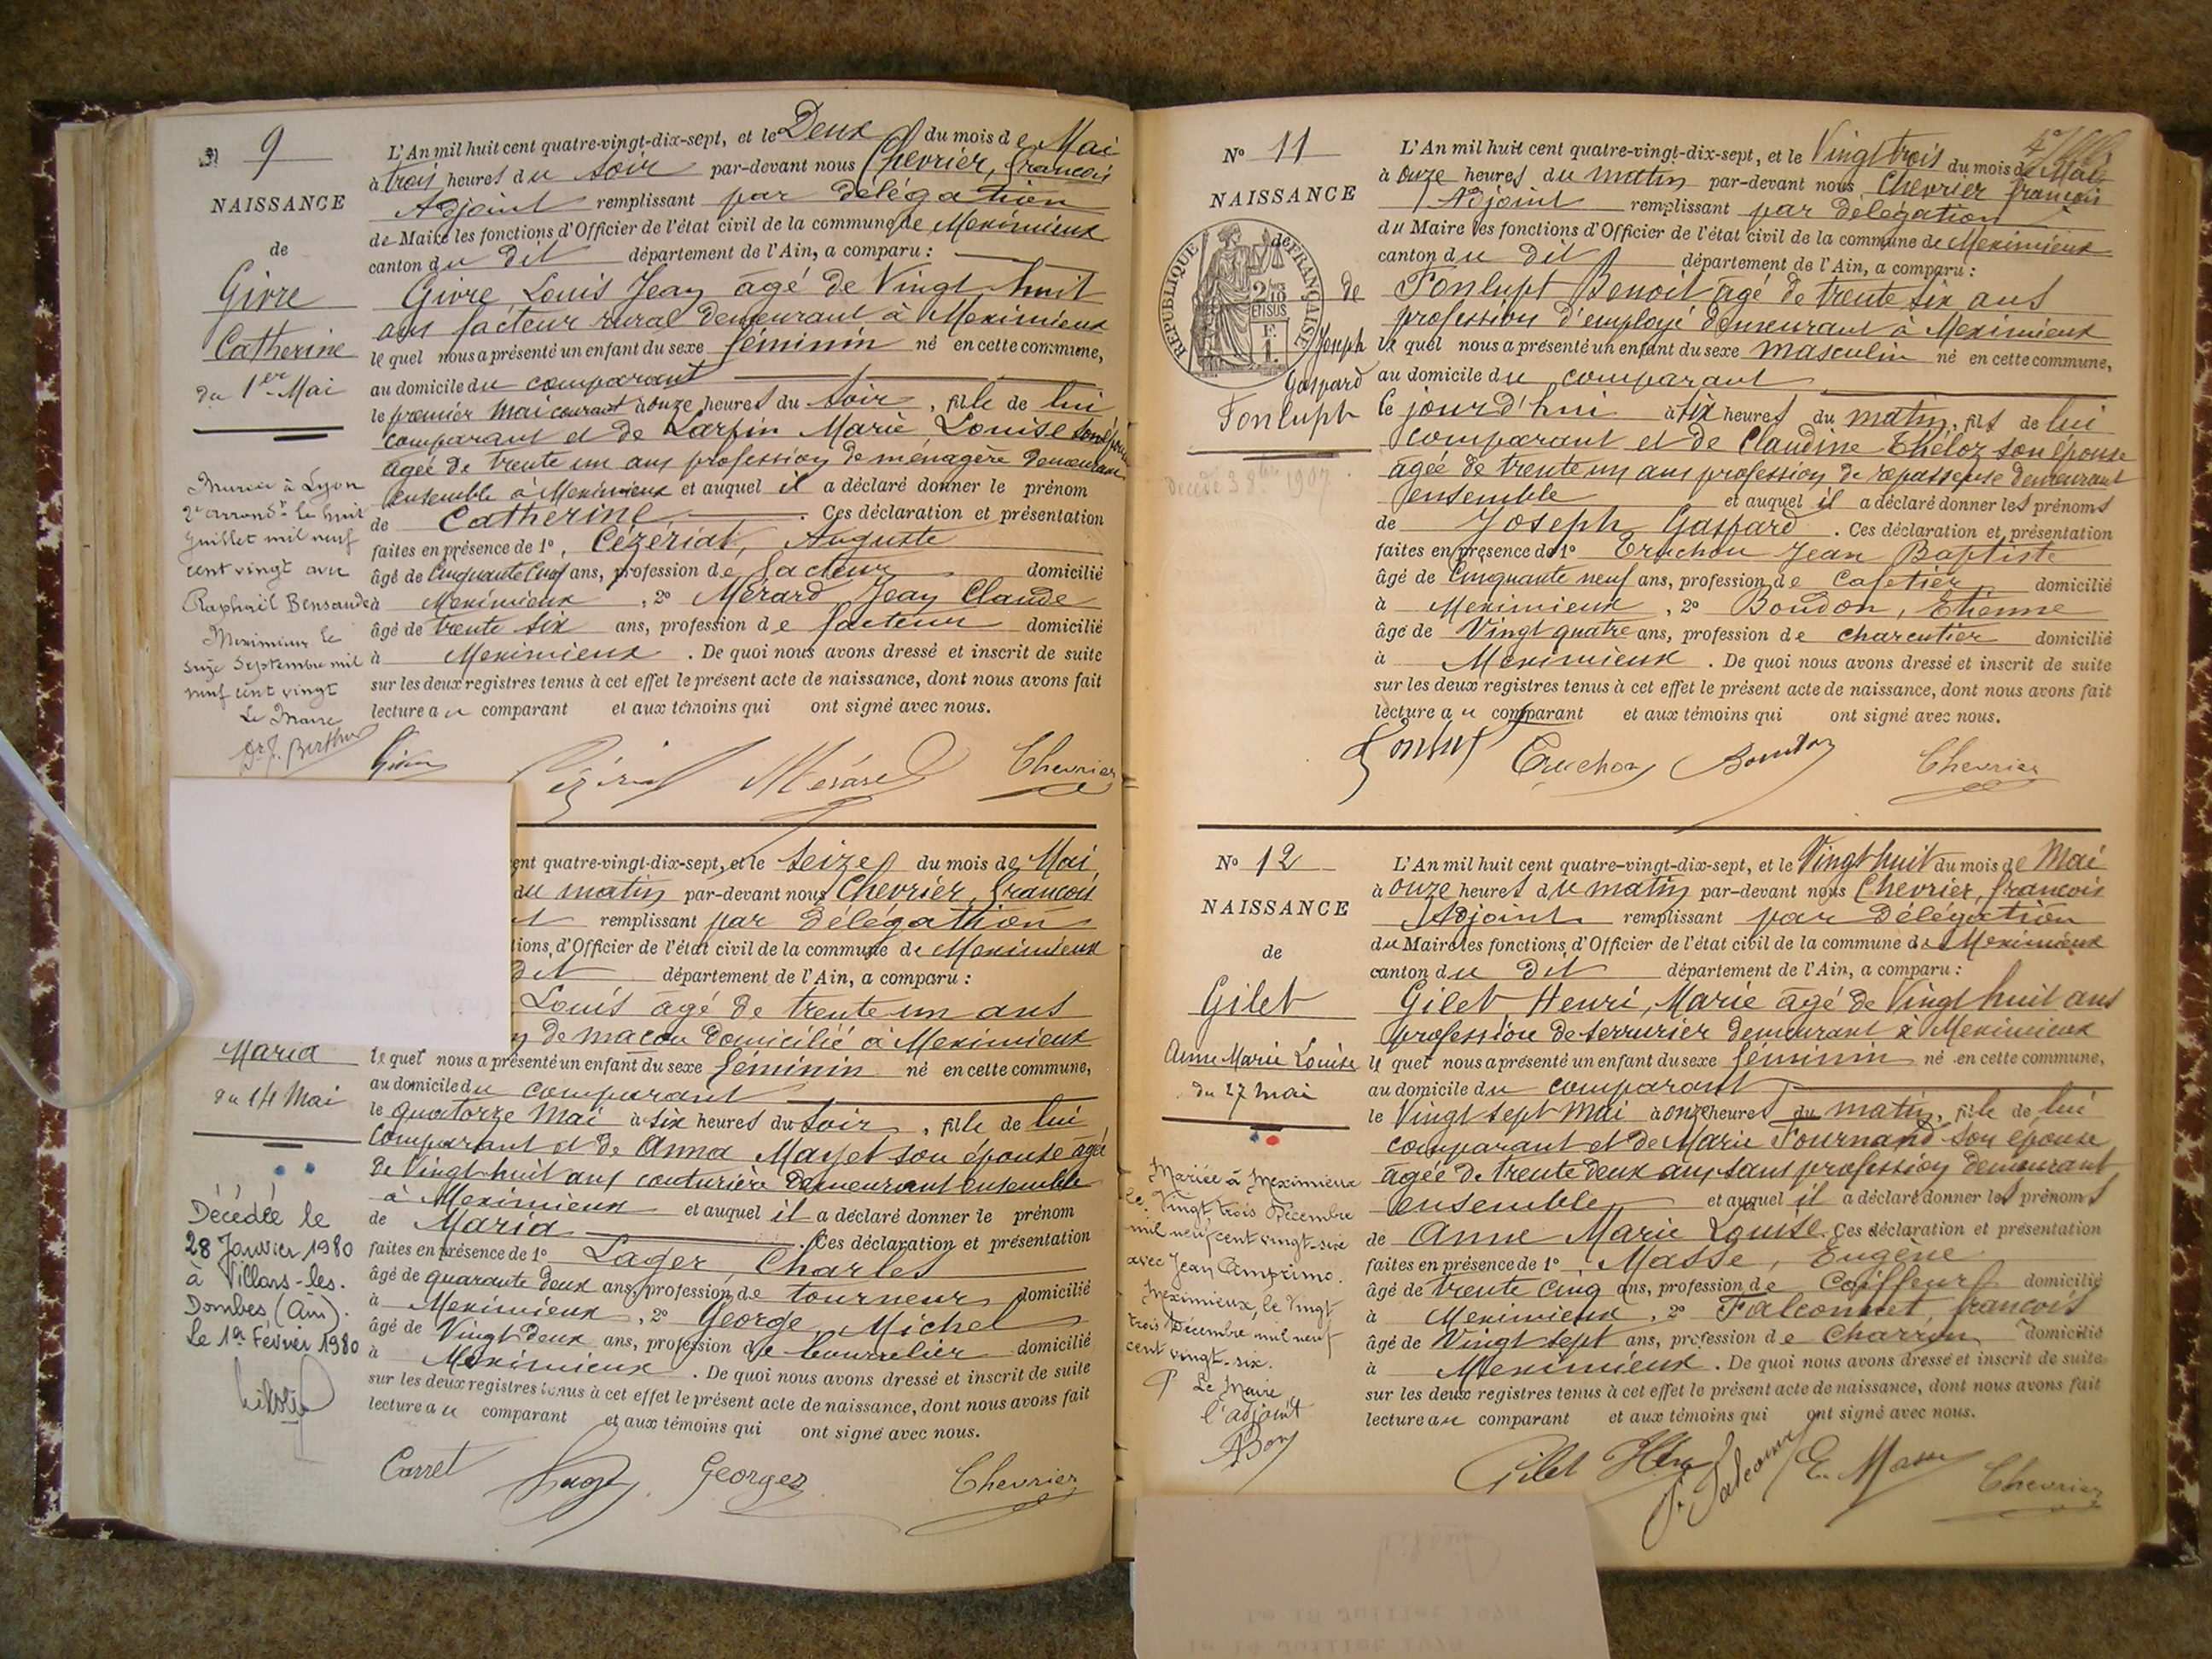 9
NAISSANCE
de
Givre
Catherine
du 1er Mai
Mariée à Lyon
2e arrondt le huit
Juillet mil neuf
cent vingt avec
Raphaël Bensaude
Meximieux le
seize Septembre mil
neuf cent vingt
Le Maire
L'An mil huit cent quatre-vingt-dix-sept, et le Deux du mois de Mai
à trois heures du soir par-devant nous Chevrier, françois
Adjoint remplissant par délégation
du Maire les fonctions d'Officier de l'état civil de la commune de Meximieux
canton du dit département de l'Ain, a comparu :
Givre Louis Jean âgé de Vingt huit
ans facteur rural demeurant à Meximieux
le quel nous a présenté un enfant du sexe féminin né en cette commune,
au domicile du comparant
le premier mai courant à onze heures du soir, fille de lui
comparant et de Larfin Marie Louise son épouse
âgée de trente un ans profession de ménagère demeurant
ensemble à Meximieux et auquel il a déclaré donner le prénom
de Catherine. Ces déclaration et présentation
faites en présence de 1°, Cézériat, Auguste
âgé de Cinquante Cinq ans, profession de facteur domicilié
à Meximieux, 2° Mérard Jean Claude
âgé de trente six ans, profession de facteur domicilié
à Meximieux. De quoi nous avons dressé et inscrit de suite
sur les deux registres tenus à cet effet le présent acte de naissance, dont nous avons fait
lecture au comparant et aux témoins qui ont signé avec nous.
Mérard Chevrier
Maria
du 14 Mai
Décédée le
28 Janvier 1980
à Villars-les-
Dombes (Ain).
Le 1er Février 1980
ent quatre-vingt-dix-sept, et le seize du mois de Mai
du matin par-devant nous Chevrier, françois
t remplissant par délégation
tions d'Officier de l'état civil de la commune de Meximieux
dit département de l'Ain, a comparu :
Louis âgé de trente un ans
n de maçon domicilié à Meximieux
le quel nous a présenté un enfant du sexe féminin né en cette commune,
au domicile du comparant
le quatorze mai à six heures du soir, fille de lui
comparant et de Anna Mayet son épouse âgée
de Vingt-huit ans couturière demeurant ensemble
à Meximieux et auquel il a déclaré donner le prénom
de Maria. Ces déclaration et présentation
faites en présence de 1° Lager, Charles
âgé de quarante deux ans, profession de tourneur domicilié
à Meximieux, 2° George Michel
âgé de Vingt deux ans, profession de bourrelier domicilié
à Meximieux. De quoi nous avons dressé et inscrit de suite
sur les deux registres tenus à cet effet le présent acte de naissance, dont nous avons fait
lecture au comparant et aux témoins qui ont signé avec nous.
Carret Lager Georges Chevrier
N° 11
NAISSANCE
RÉPUBLIQUE FRANÇAISE
de
Joseph
Gaspard
Fonlupt
Décédé 3 8bre 1907
L'An mil huit cent quatre-vingt-dix-sept, et le Vingt trois du mois de Mai
à onze heures du matin par-devant nous Chevrier françois
Adjoint remplissant par délégation
du Maire les fonctions d'Officier de l'état civil de la commune de Meximieux
canton du dit département de l'Ain, a comparu :
Fonlupt Benoit âgé de trente six ans
profession d'employé demeurant à Meximieux
le quel nous a présenté un enfant du sexe masculin né en cette commune,
au domicile du comparant
ce jourd'hui à six heures du matin, fils de lui
comparant et de Claudine Théloz son épouse
âgée de trente un ans profession de repasseuse demeurant
ensemble et auquel il a déclaré donner les prénoms
de Joseph Gaspard. Ces déclaration et présentation
faites en présence de 1° Truchon Jean Baptiste
âgé de Cinquante neuf ans, profession de Cafetier domicilié
à Meximieux, 2° Boudon, Etienne
âgé de Vingt quatre ans, profession de charcutier domicilié
à Meximieux. De quoi nous avons dressé et inscrit de suite
sur les deux registres tenus à cet effet le présent acte de naissance, dont nous avons fait
lecture au comparant et aux témoins qui ont signé avec nous.
Fonlupt Truchon Boudon Chevrier
N° 12
NAISSANCE
de
Gilet
Anne Marie Louise
du 27 mai
Mariée à Meximieux
le Vingt trois Décembre
mil neuf cent vingt-six
avec Jean Amprimo.
Meximieux, le Vingt
trois Décembre mil neuf
cent vingt-six.
P Le Maire
l'adjoint
L'An mil huit cent quatre-vingt-dix-sept, et le Vingt huit du mois de Mai
à onze heures du matin par-devant nous Chevrier, françois
Adjoint remplissant par délégation
du Maire les fonctions d'Officier de l'état civil de la commune de Meximieux
canton du dit département de l'Ain, a comparu :
Gilet Henri, Marie âgé de Vingt huit ans
profession de serrurier demeurant à Meximieux
le quel nous a présenté un enfant du sexe féminin né en cette commune,
au domicile du comparant
le Vingt sept mai à onze heures du matin, fille de lui
comparant et de Marie Fournand son épouse
âgée de trente deux ans sans profession demeurant
ensemble et auquel il a déclaré donner les prénoms
de Anne Marie Louise. Ces déclaration et présentation
faites en présence de 1° Masse, Eugène
âgé de trente cinq ans, profession de Coiffeur domicilié
à Meximieux, 2° Falconnet, françois
âgé de Vingt sept ans, profession de Charron domicilié
à Meximieux. De quoi nous avons dressé et inscrit de suite
sur les deux registres tenus à cet effet le présent acte de naissance, dont nous avons fait
lecture au comparant et aux témoins qui ont signé avec nous.
Gilet Hen E. Masse Chevrier